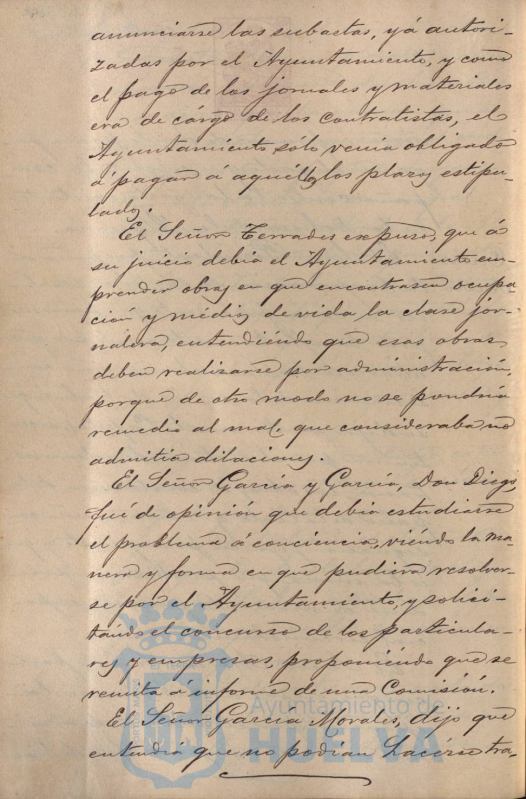 anunciarse las subastas, yá autori-
zadas por el Ayuntamiento, y como
el pago de los jornales y materiales
era de cárgo de los contratistas, el
Ayuntamiento sólo venia obligado
á pagar á aquéllos los plazos estipu-
lados.
El Señor Terrades expuso, que á
su juicio debia el Ayuntamiento em-
prender obras en que encontrasen ocupa-
ción y médios de vida la clase jor-
nalera, entendiéndo que esas obras
deben realizarse por administración,
porque de otro modo no se pondría
remedio al mal, que consideraba no
admitia dilaciones.
El Señor García y García, Don Diego,
fué de opinión que debia estudiarse
el problema á conciencia, viéndo la ma-
nera y forma en que pudiera resolver-
se por el Ayuntamiento, y solici-
tándo el concurso de los particula-
res y empresas, proponiéndo que se
remita á informe de una Comisión.
El Señor García Morales, dijo que
entendia que no podian hacérse tra-
Ayuntamiento de
HUELVA